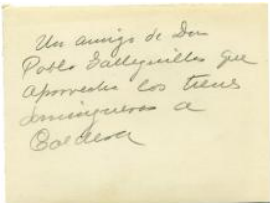 Un amigo de Don
Pablo Galleguillos que
aprovecha los trenes
domingueros a
Caldera